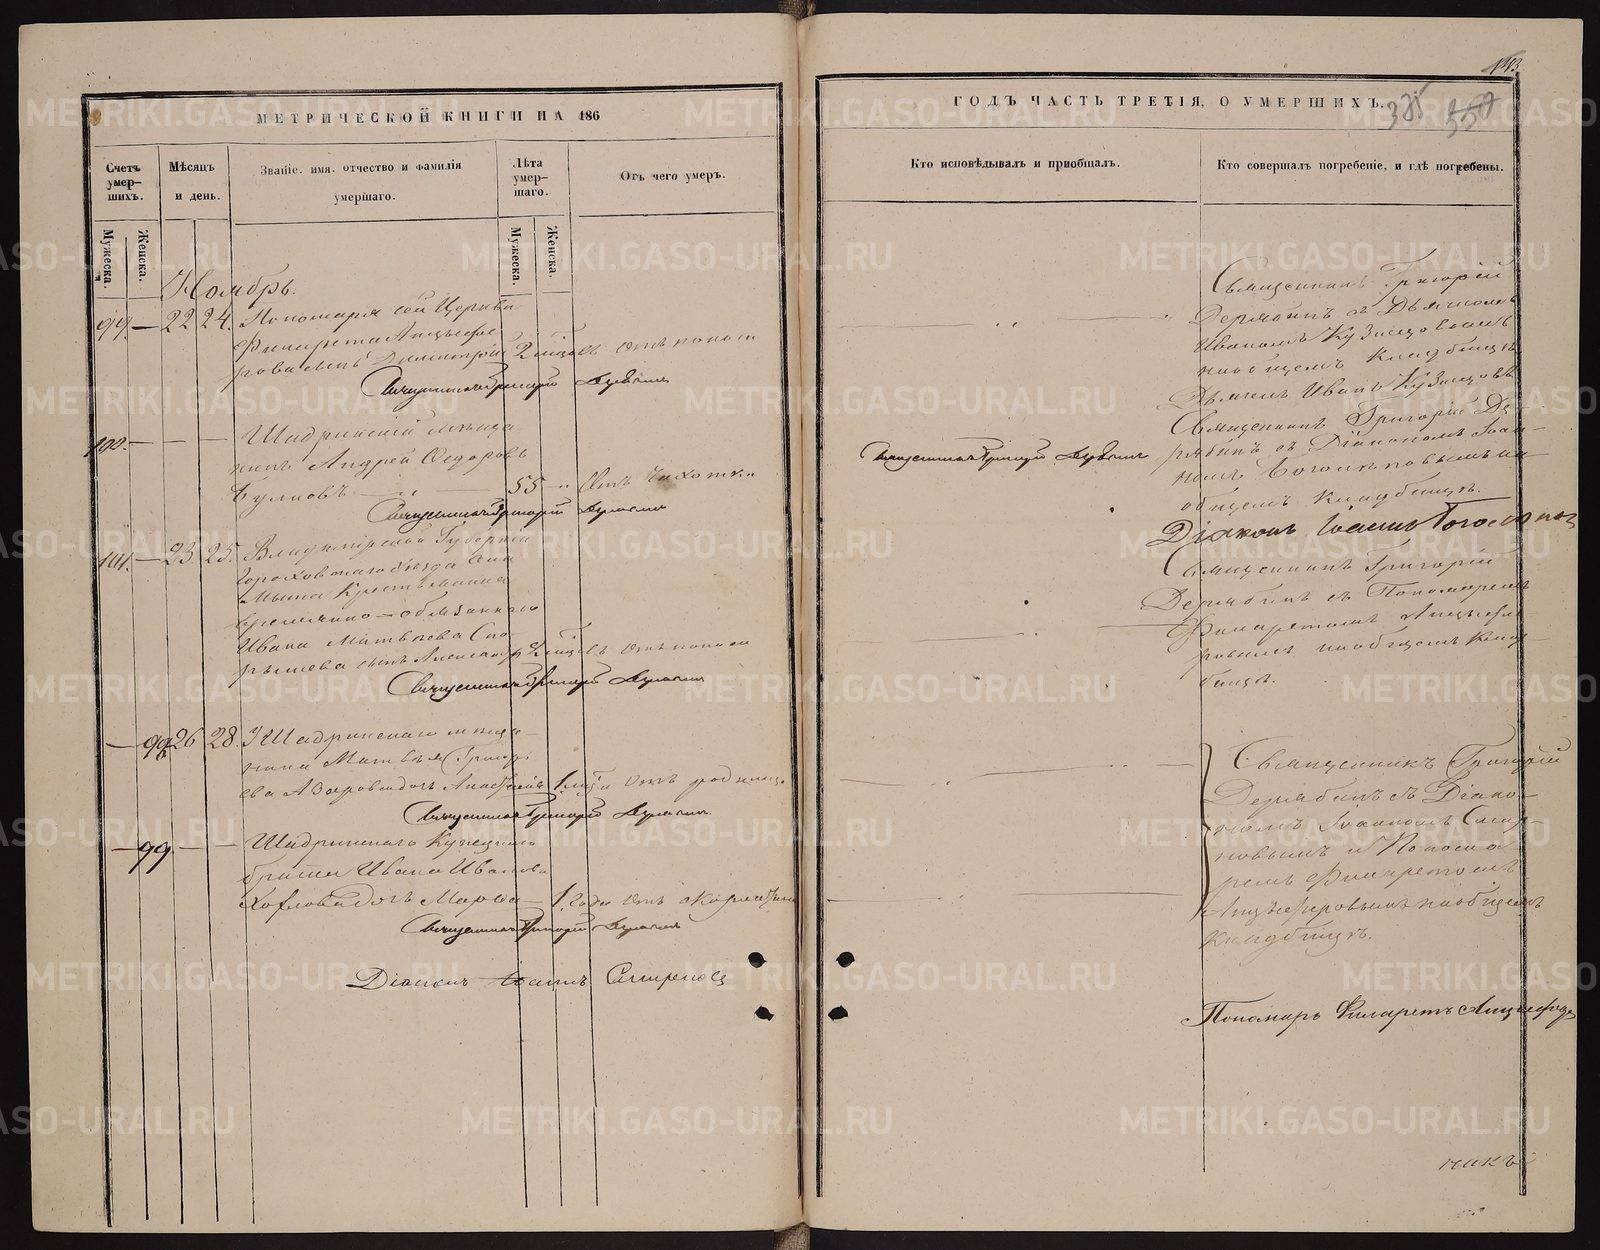 МЕТРИЧЕСКОЙ КНИГИ НА 186
Счетъ умер-шихъ.
Мужеска.
Женска.
Мѣсяцъ и день.
Званіе, имя, отчество и фамилія умершаго.
Лѣта умер-шаго.
Мужеска.
Женска.
Отъ чего умеръ.
Ноябрь.
99. — 22 24. Пономаря сей Церкви
Филарета Анцыфе
рова сынъ Димитрій 2 мѣсц. отъ поноса
Священникъ Григорій Дерябинъ
100. — — — Шадринскій мѣща
нинъ Андрей Ѳедоровъ
55 Отъ чахотки
Священникъ Григорій Дерябинъ
101. — 23 25. Владимірской Губерніи
Гороховскаго уѣзда
крестьянина
временно-обязаннаго
Ивана Матвѣева Спо
рышева сынъ Александръ 2 мѣсц. отъ поноса
Священникъ Григорій Дерябинъ
— 98 26 28. Шадринскаго мѣща-
нина Матвѣя Григорь
ева Азарова дочь 1 отъ родимца
Священникъ Григорій Дерябинъ
— 99. — — Шадринскаго Купецкаго
брата Ивана Иванова
дочь Марѳа — 1 года отъ скарлатины
Священникъ Григорій Дерябинъ
Діаконъ Іоаннъ Смирновъ
143
385 350
ГОДЪ ЧАСТЬ ТРЕТІЯ, О УМЕРШИХЪ.
Кто исповѣдывалъ и пріобщалъ.
Кто совершалъ погребеніе, и гдѣ погребены.
Священникъ Григорій
Дерябинъ съ Дьячкомъ
Иваномъ Кузнецовымъ
на общемъ кладбищѣ
Дьячекъ Иванъ Кузнецовъ
Священникъ Григорій Дерябинъ
Священникъ Григорій Де
рябинъ съ Діакономъ Іоан-
номъ Богомоловымъ на
общемъ кладбищѣ.
Діаконъ Іоаннъ
Священникъ Григорій
Дерябинъ съ Пономаремъ
Филаретомъ Анцыфе
ровымъ на общемъ клад-
бищѣ.
Священникъ Григорій
Дерябинъ съ Діако-
номъ Іоанномъ Смир-
новымъ и Понома
ремъ Филаретомъ
Анцыферовымъ на общемъ
кладбищѣ.
Пономарь Филаретъ Анцыферовъ
METRIKI.GASO-URAL.RU